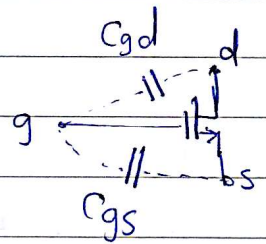 Cgd
d
g
s
Cgs